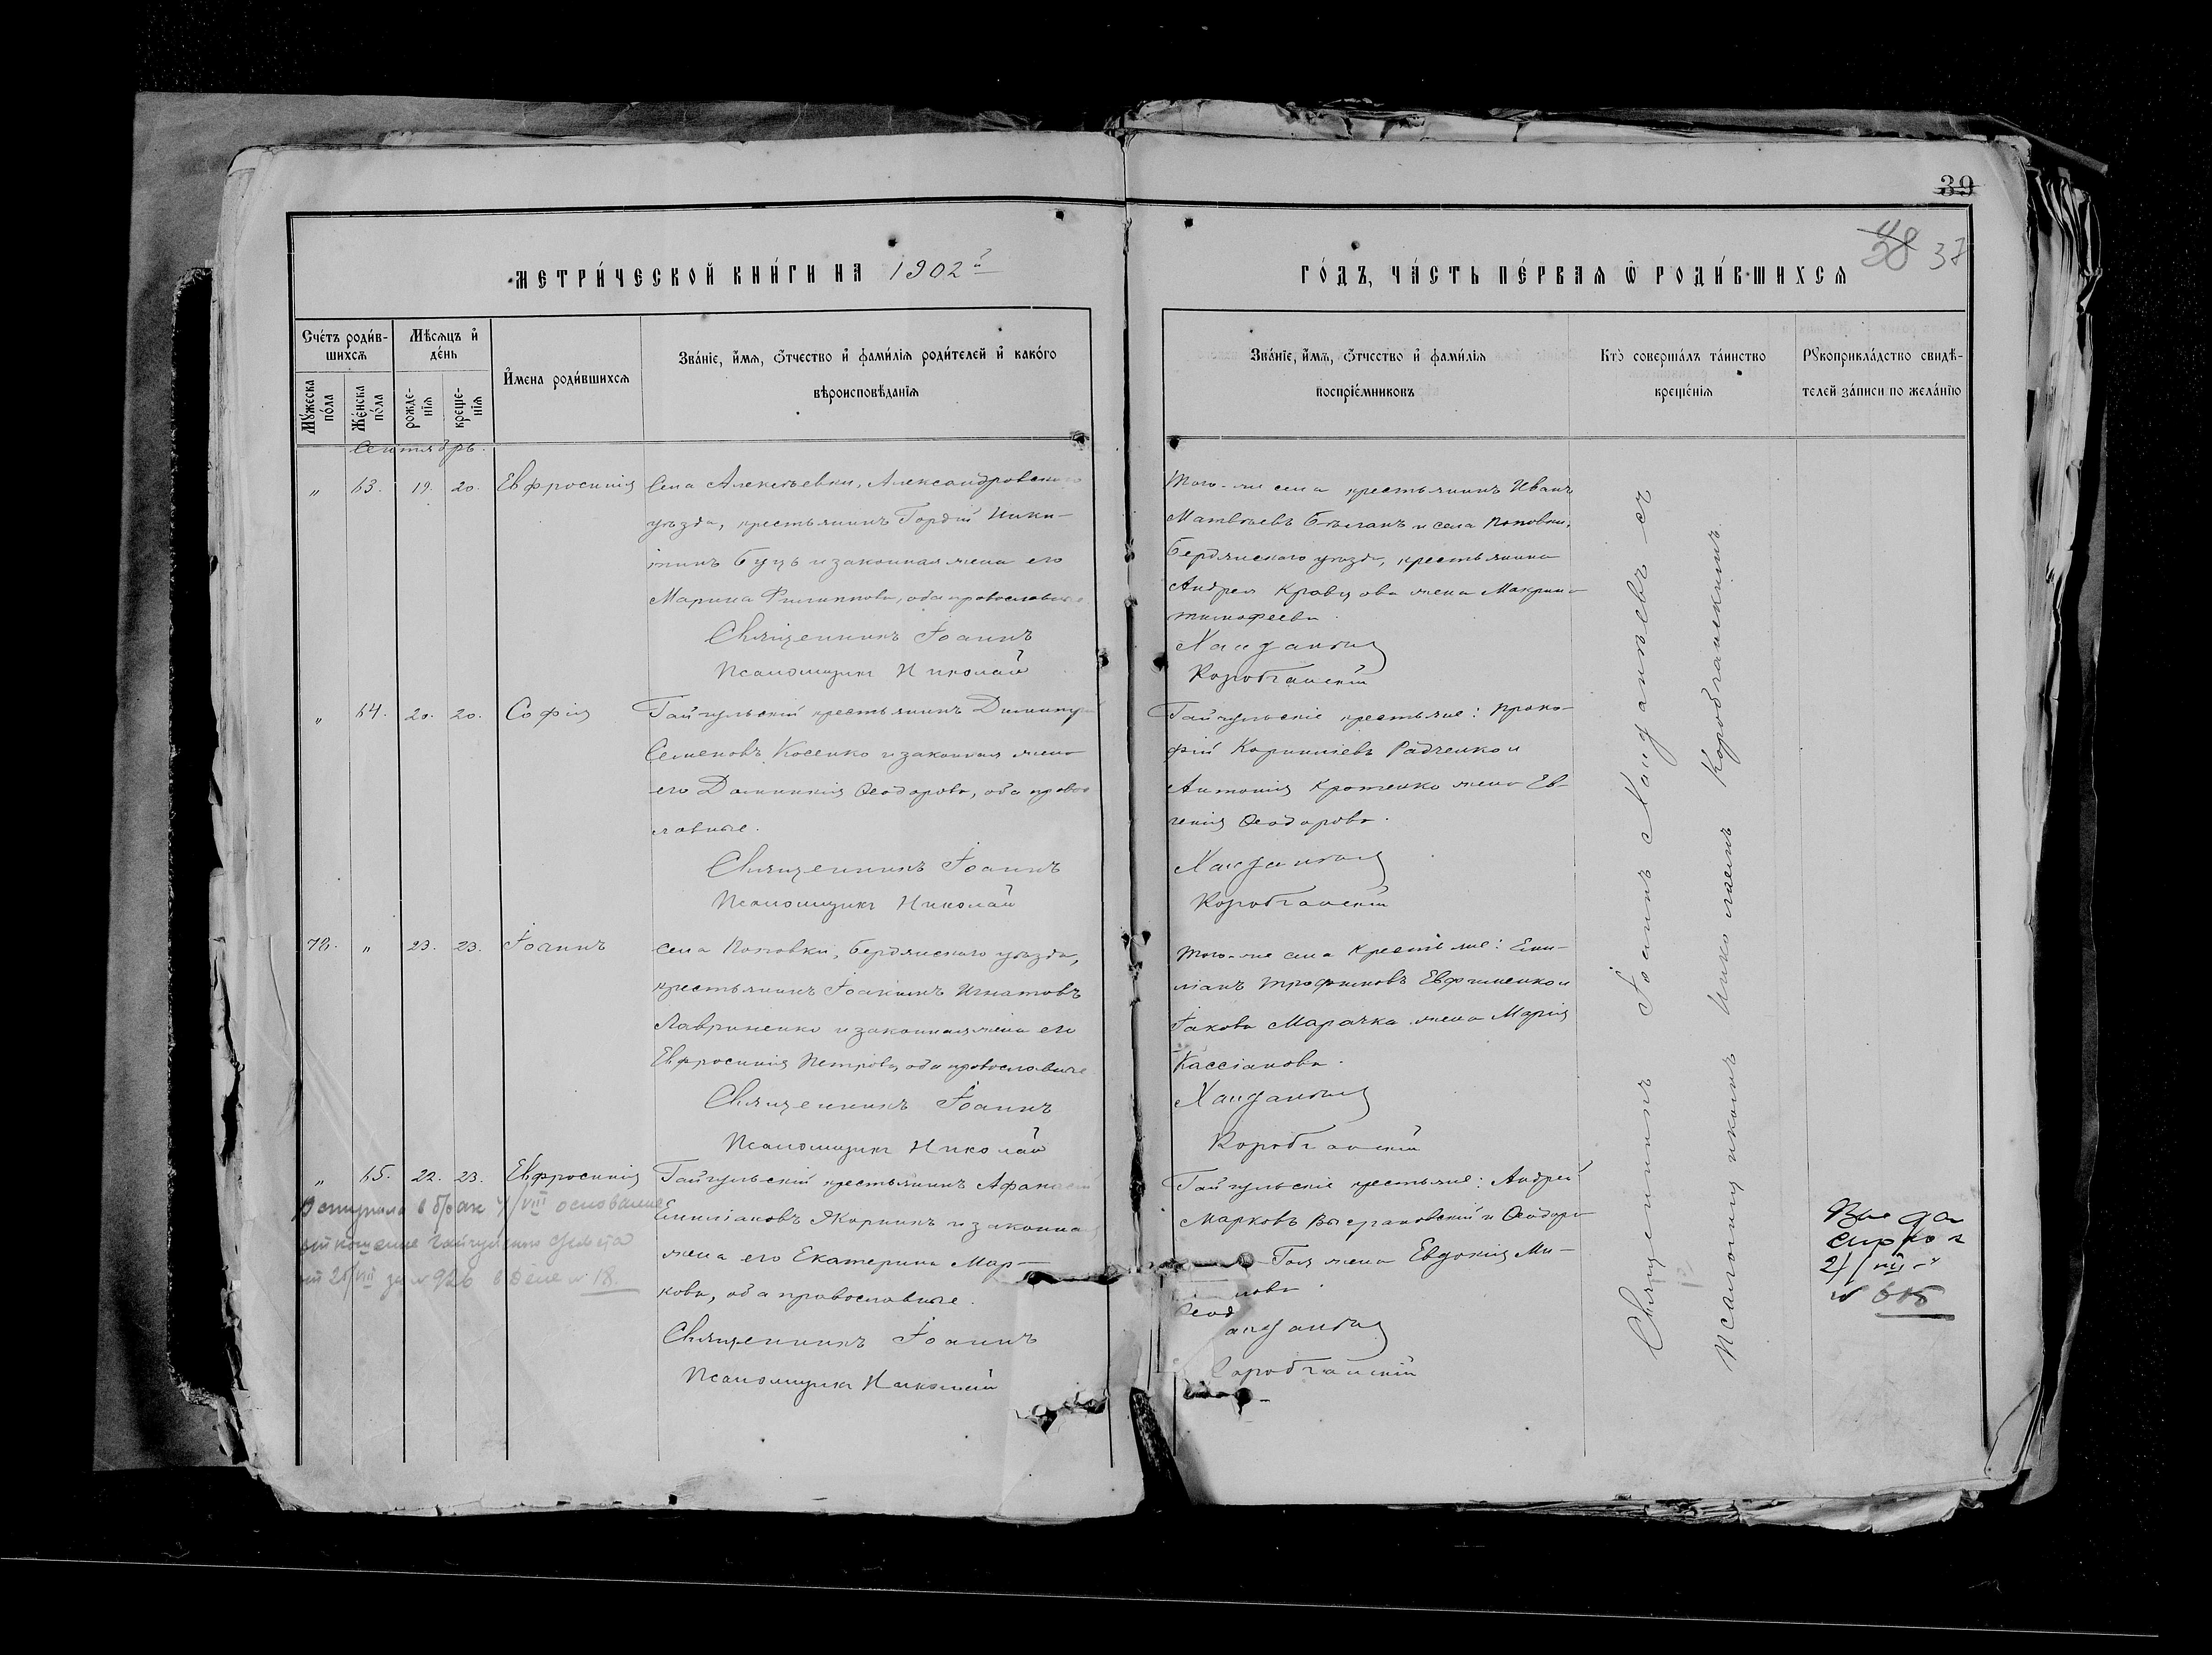 39
38 37
МЕТРИ́ЧЕСКОЙ КНИ́ГИ НА 1902й
ГО́ДЪ, ЧА́СТЬ ПЕ́РВАЯ Ѿ РОДИ́ВШИХСѦ
Сче́тъ роди́в-
шихсѧ
Мꙋ́жеска
по́ла
Же́нска
по́ла
Мѣ́сѧцъ и҆
де́нь
рожде́-
нїѧ
креще́-
нїѧ
И҆мена роди́вшихсѧ
Зва́нїе, и҆́мѧ, ѻ҆́тчество и҆ фами́лїѧ роди́телей и҆ како́гѡ
вѣроисповѣ́данїѧ
Зва́нїе, и҆́мѧ, ѻ҆́тчество и҆ фами́лїѧ
воспрїе́мниковъ
Кто̀ соверша́лъ та́инство
креще́нїѧ
Рꙋкоприкла́дство свидѣ́-
телей за́писи по жела́нїю
Сентябрь.
" 63. 19. 20. Евфросинія
Села Алексѣевки, Александровскаго
уѣзда, крестьянинъ Гордій Ники-
тинъ Буцъ и законная жена его
Марина Филиппова, оба православные
Священникъ Іоаннъ
Псаломщикъ Николай
Того-же села крестьянинъ Иванъ
Матвѣевъ и села Поповки,
Бердянскаго уѣзда, крестьянина
Андрея Кравцова жена Макрина
Тимофеева.
Коробчанскій
" 64. 20. 20. Софія
Гайчульскій крестьянинъ Димитрій
Семеновъ Косенко и законная жена
его Домникія Ѳеодорова, оба правос
лавные.
Священникъ Іоаннъ
Псаломщикъ Николай
Гайчульскіе крестьяне: Проко-
фій Корниліевъ Радченко и
Антонія Кротенко жена Ев-
генія Ѳеодорова.
Коробчанскій
78. " 23. 23. Іоаннъ
села Поповки, Бердянскаго уѣзда,
крестьянинъ Іоакимъ Игнатовъ
Лавриненко и законная жена его
Евфросинія Петрова, оба православные
Священникъ Іоаннъ
Псаломщикъ Николай
Того-же села крестьяне: Еми-
ліанъ Трофимовъ Евфименко и
Іакова Марачка жена Марія
Кассіанова.
Коробчанскій
" 65. 22. 23. Евфросинія
Гайчульскій крестьянинъ Афанасій
Емиліановъ Якорнинъ и законная
жена его Екатерина Мар-
кова, оба православные.
Священникъ Іоаннъ
Псаломщикъ Николай
Гайчульскіе крестьяне: Андрей
Марковъ и Ѳеодора
жена Евдокія Ми-
нова
Ѳеод
оробчанскій
Вступила в брак VIII основание
отношение Гайчульского
от VIII за № 926 в деле № 18.
Священникъ Іоаннъ съ
Псаломщикомъ Николаемъ Коробчанскимъ
Выда